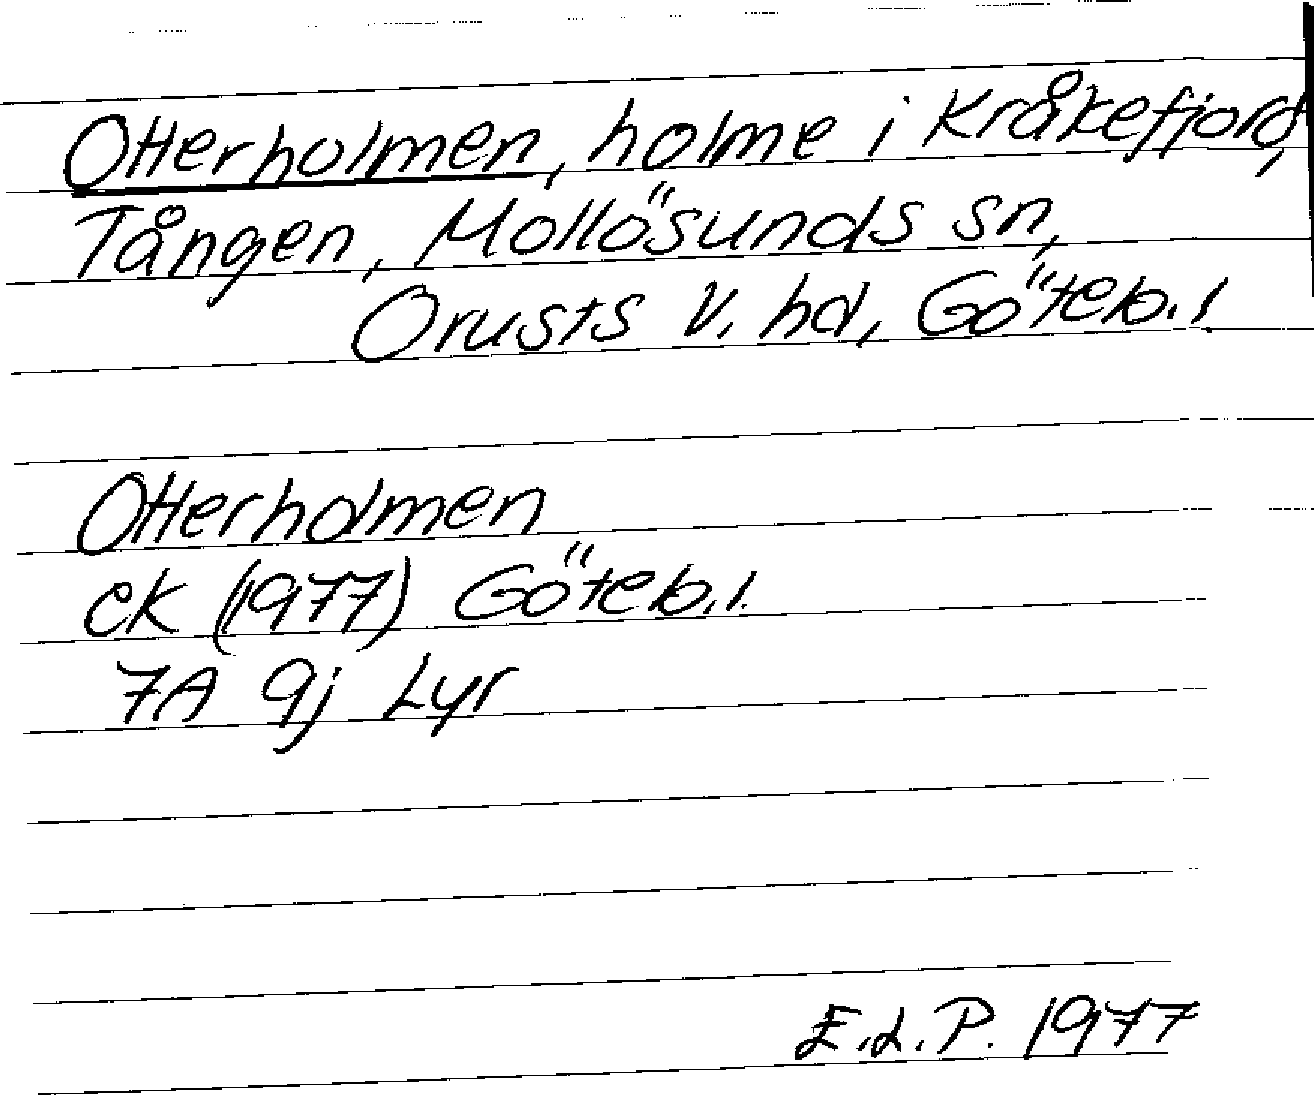 Otterholmen, holme i Kråkefjord,
Tången, Mollösunds sn,
Orusts v. hd, Göteb. l
Otterholmen
ek (1977) Göteb. l.
7A 9j Lyr
E.L.P. 1977